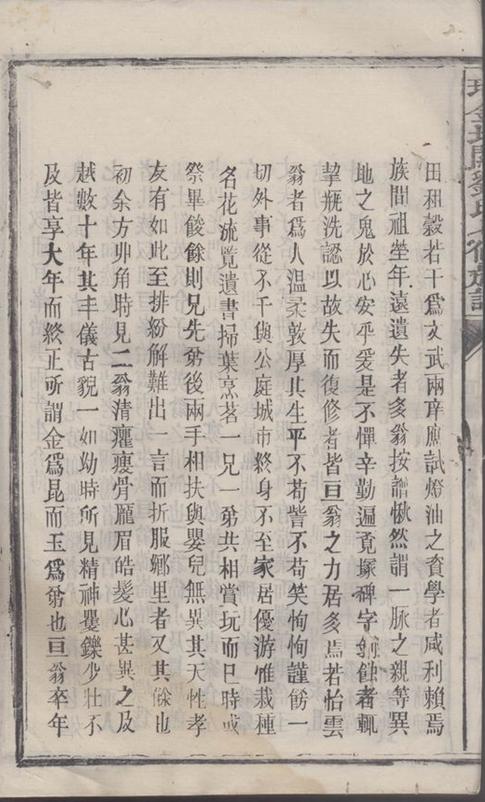 田租穀若干為文武兩庠應試燈油之資學者咸利賴焉
族間祖塋年遠遺失者多翁按譜愀然謂一脉之親等異
地之鬼於心安乎爰是不憚辛勤遍覓塚碑字剝蝕者輒
挈瓶洗認以故失而復修者皆亘翁之力居多焉若怡雲
翁者為人温柔敦厚其生平不苟訾不苟笑恂恂謹飭一
切外事從不干與公庭城市終身不至家居優游惟栽種
名花流覽遺書掃葉烹茗一兄一弟共相賞玩而已時或
祭畢餕餘則兄先弟後兩手相扶與嬰兒無異其天性孝
友有如此至排紛解難出一言而折服鄉里者又其餘也
初余方丱角時見二翁清癯瘦骨龐眉皓髮心甚異之及
越數十年其丰儀古貌一如幼時所見精神矍鑠少壯不
及皆享大年而終正所謂金為昆而玉為弟也亘翁卒年